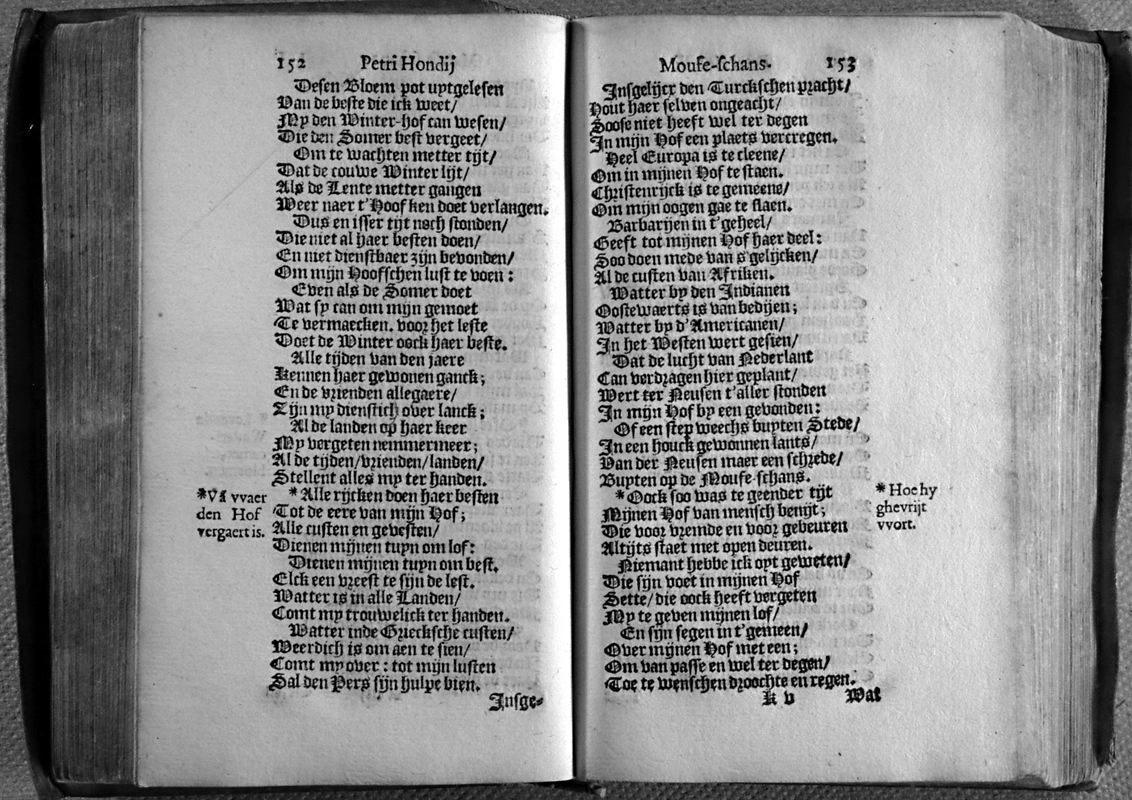 152 Petri Hondij
Desen Bloem pot uytgelesen
Van de beste die ick weet/
My den Winter-hof can wesen/
Die den Somer best vergeet/
Om te wachten metter tijt/
Dat de couwe Winter lijt/
Als de Lente metter gangen
Weer naer t'Hoof ken doet verlangen.
Dus en isser tijt noch stonden/
Die niet al haer besten doen/
En niet dienstbaer zijn bevonden/
Om mijn Hoofschen lust te voen:
Even als de Somer doet
Wat sy can om mijn gemoet
Te vermaecken. voor het leste
Doet de Winter oock haer beste.
Alle tijden van den jaere
Kennen haer gewonen ganck;
En de vrienden allegaere/
Zijn my dienstich over lanck;
Al de landen op haer keer
My vergeten nemmermeer;
Al de tijden/vrienden/landen/
Stellent alles my ter handen.
* Alle rijcken doen haer besten
Tot de eere van mijn Hof;
Alle custen en gevesten/
Dienen mijnen tuyn om lof:
Dienen mijnen tuyn om best.
Elck een vreest te sijn de lest.
Watter is in alle Landen/
Comt my trouwelick ter handen.
Watter inde Griecksche custen/
Weerdich is om aen te sien/
Comt my over: tot mijn lusten
Sal den Pers sijn hulpe bien.
Insge-
*Vā vvaer
den Hof
vergaert is.
Mouse-schans. 153
Insgelijcx den Turckschen pracht/
Hout haer selven ongeacht/
Soose niet heeft wel ter degen
In mijn Hof een plaets vercregen.
Heel Europa is te cleene/
Om in mijnen Hof te staen.
Christenrijck is te gemeene/
Om mijn oogen gae te slaen.
Barbarijen in t'geheel/
Geeft tot mijnen Hof haer deel:
Soo doen mede van s'gelijcken/
Al de custen van Afriken.
Watter by den Indianen
Oostewaerts is van bedijen;
Watter by d'Americanen/
In het Westen wert gesien/
Dat de lucht van Nederlant
Can verdragen hier geplant/
Wert ter Neusen t'aller stonden
In mijn Hof by een gevonden:
Of een step weechs buyten Stede/
In een houck gewonnen lants/
Van der Neusen maer een schrede/
Buyten op de Mouse-schans.
* Oock soo was te geender tijt
Mijnen Hof van mensch benijt;
Die voor vremde en voor gebeuren
Altijts staet met open deuren.
Niemant hebbe ick oyt geweten/
Die sijn voet in mijnen Hof
Sette/die oock heeft vergeten
My te geven mijnen lof/
En sijn segen in t'gemeen/
Over mijnen Hof met een;
Om van passe en wel ter degen/
Toe te wenschen droochte en regen.
K v Wat
* Hoe hy
ghevrijt
vvort.